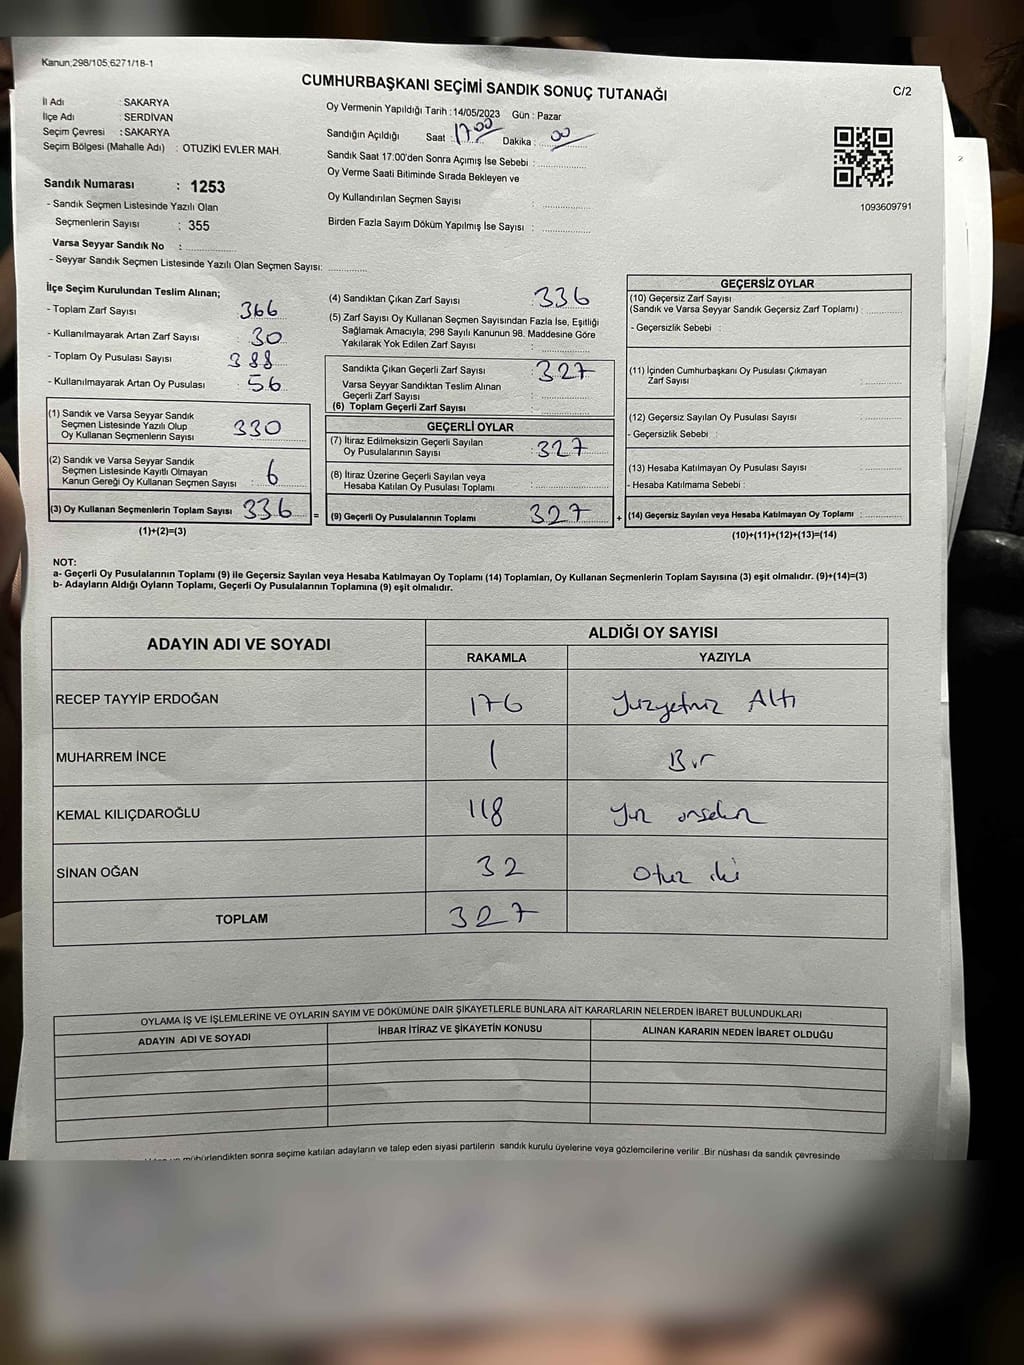 Kanun;298/105,6271/18-1
CUMHURBAŞKANI SEÇİMİ SANDIK SONUÇ TUTANAĞI
C/2
İl Adı : SAKARYA
İlçe Adı : SERDİVAN
Seçim Çevresi : SAKARYA
Seçim Bölgesi (Mahalle Adı) : OTUZİKİ EVLER MAH.
Sandık Numarası : 1253
- Sandık Seçmen Listesinde Yazılı Olan
Seçmenlerin Sayısı : 355
Varsa Seyyar Sandık No :
- Seyyar Sandık Seçmen Listesinde Yazılı Olan Seçmen Sayısı:
Oy Vermenin Yapıldığı Tarih : 14/05/2023 Gün : Pazar
Sandığın Açıldığı Saat : 17:00 Dakika : 00
Sandık Saat 17:00'den Sonra Açımış İse Sebebi :
Oy Verme Saati Bitiminde Sırada Bekleyen ve
Oy Kullandırılan Seçmen Sayısı :
Birden Fazla Sayım Döküm Yapılmış İse Sayısı :
1093609791
İlçe Seçim Kurulundan Teslim Alınan;
- Toplam Zarf Sayısı : 366
- Kullanılmayarak Artan Zarf Sayısı : 30
- Toplam Oy Pusulası Sayısı : 388
- Kullanılmayarak Artan Oy Pusulası : 56
(1) Sandık ve Varsa Seyyar Sandık
Seçmen Listesinde Yazılı Olup
Oy Kullanan Seçmenlerin Sayısı : 330
(2) Sandık ve Varsa Seyyar Sandık
Seçmen Listesinde Kayıtlı Olmayan
Kanun Gereği Oy Kullanan Seçmen Sayısı : 6
(3) Oy Kullanan Seçmenlerin Toplam Sayısı 336 =
(1)+(2)=(3)
(4) Sandıktan Çıkan Zarf Sayısı : 336
(5) Zarf Sayısı Oy Kullanan Seçmen Sayısından Fazla İse, Eşitliği
Sağlamak Amacıyla; 298 Sayılı Kanunun 98. Maddesine Göre
Yakılarak Yok Edilen Zarf Sayısı :
Sandıkta Çıkan Geçerli Zarf Sayısı : 327
Varsa Seyyar Sandıktan Teslim Alınan
Geçerli Zarf Sayısı :
(6) Toplam Geçerli Zarf Sayısı :
GEÇERLİ OYLAR
(7) İtiraz Edilmeksizin Geçerli Sayılan
Oy Pusulalarının Sayısı : 327
(8) İtiraz Üzerine Geçerli Sayılan veya
Hesaba Katılan Oy Pusulası Toplamı :
(9) Geçerli Oy Pusulalarının Toplamı 327 +
GEÇERSİZ OYLAR
(10) Geçersiz Zarf Sayısı
(Sandık ve Varsa Seyyar Sandık Geçersiz Zarf Toplamı) :
- Geçersizlik Sebebi :
(11) İçinden Cumhurbaşkanı Oy Pusulası Çıkmayan
Zarf Sayısı :
(12) Geçersiz Sayılan Oy Pusulası Sayısı :
- Geçersizlik Sebebi :
(13) Hesaba Katılmayan Oy Pusulası Sayısı :
- Hesaba Katılmama Sebebi :
(14) Geçersiz Sayılan veya Hesaba Katılmayan Oy Toplamı :
(10)+(11)+(12)+(13)=(14)
NOT:
a- Geçerli Oy Pusulalarının Toplamı (9) ile Geçersiz Sayılan veya Hesaba Katılmayan Oy Toplamı (14) Toplamları, Oy Kullanan Seçmenlerin Toplam Sayısına (3) eşit olmalıdır. (9)+(14)=(3)
b- Adayların Aldığı Oyların Toplamı, Geçerli Oy Pusulalarının Toplamına (9) eşit olmalıdır.
ADAYIN ADI VE SOYADI ALDIĞI OY SAYISI
RAKAMLA YAZIYLA
RECEP TAYYİP ERDOĞAN 176 Yüzyetmiz Altı
MUHARREM İNCE 1 Bir
KEMAL KILIÇDAROĞLU 118 Yüz onsekiz
SİNAN OĞAN 32 Otuz iki
TOPLAM 327
OYLAMA İŞ VE İŞLEMLERİNE VE OYLARIN SAYIM VE DÖKÜMÜNE DAİR ŞİKAYETLERLE BUNLARA AİT KARARLARIN NELERDEN İBARET BULUNDUKLARI
ADAYIN ADI VE SOYADI İHBAR İTİRAZ VE ŞİKAYETİN KONUSU ALINAN KARARIN NEDEN İBARET OLDUĞU
mühürlendikten sonra seçime katılan adayların ve talep eden siyasi partilerin sandık kurulu üyelerine veya gözlemcilerine verilir .Bir nüshası da sandık çevresinde